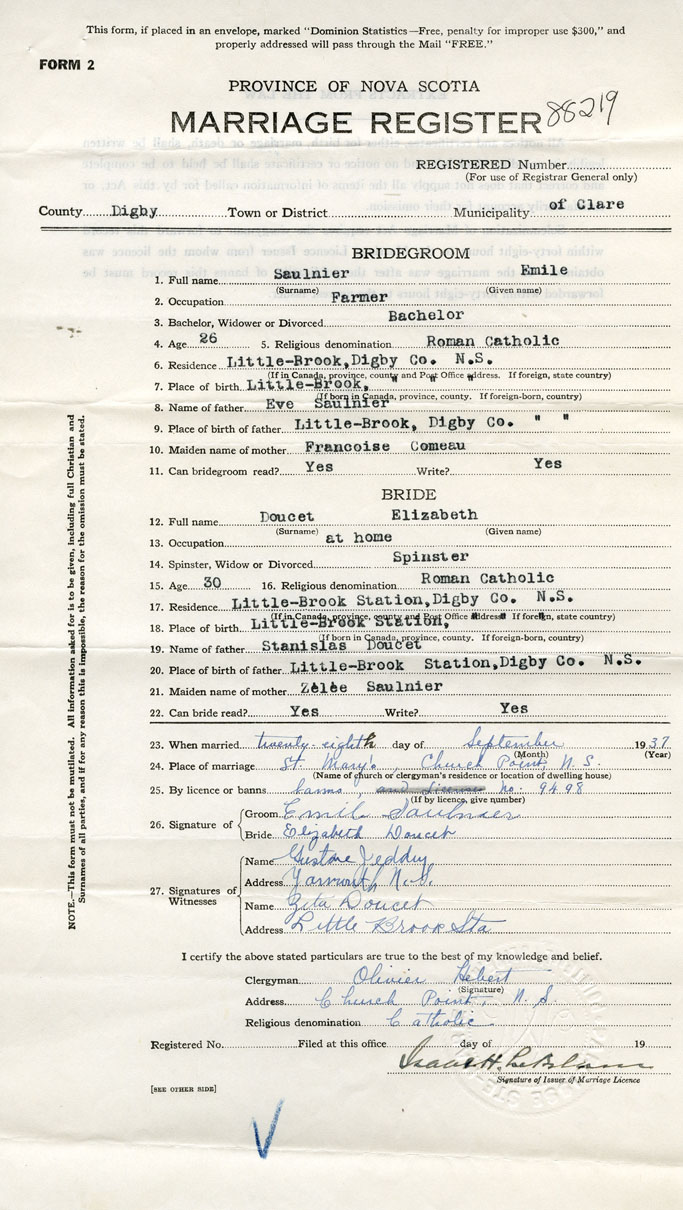 This form, if placed in an envelope, marked "Dominion Statistics—Free, penalty for improper use $300," and
properly addressed will pass through the Mail "FREE."
FORM 2
PROVINCE OF NOVA SCOTIA
MARRIAGE REGISTER 88219
REGISTERED Number
(For use of Registrar General only)
County Digby Town or District Municipality of Clare
BRIDEGROOM
1. Full name Saulnier Emile
(Surname) (Given name)
2. Occupation Farmer
3. Bachelor, Widower or Divorced Bachelor
4. Age 26 5. Religious denomination Roman Catholic
6. Residence Little-Brook, Digby Co. N.S.
(If in Canada, province, county and Post Office address. If foreign, state country)
7. Place of birth Little-Brook, " " "
(If born in Canada, province, county. If foreign-born, country)
8. Name of father Eve Saulnier
9. Place of birth of father Little-Brook, Digby Co. " "
10. Maiden name of mother Francoise Comeau
11. Can bridegroom read? Yes Write? Yes
BRIDE
12. Full name Doucet Elizabeth
(Surname) (Given name)
13. Occupation at home
14. Spinster, Widow or Divorced Spinster
15. Age 30 16. Religious denomination Roman Catholic
17. Residence Little-Brook Station, Digby Co. N.S.
(If in Canada, province, county and Post Office address. If foreign, state country)
18. Place of birth Little-Brook Station, " " "
(If born in Canada, province, county. If foreign-born, country)
19. Name of father Stanislas Doucet
20. Place of birth of father Little-Brook Station, Digby Co. N.S.
21. Maiden name of mother Zèlèe Saulnier
22. Can bride read? Yes Write? Yes
23. When married twenty-eighth day of September 1937
(Month) (Year)
24. Place of marriage St. Mary's, Church Point, N.S.
(Name of church or clergyman's residence or location of dwelling house)
25. By licence or banns banns, and License no. 9498
(If by licence, give number)
26. Signature of Groom Emil Saulnier
Bride Elizabeth Doucet
27. Signatures of Witnesses
Name Gustave
Address Yarmouth N.S.
Name Zita Doucet
Address Little Brook Sta
I certify the above stated particulars are true to the best of my knowledge and belief.
Clergyman Olivier Hebert
(Signature)
Address Church Point, N.S.
Religious denomination Catholic
Registered No. Filed at this office day of 19
Isaac H. LeBlanc
Signature of Issuer of Marriage Licence
[SEE OTHER SIDE]
NOTE.—This form must not be mutilated. All information asked for is to be given, including full Christian and
Surnames of all parties, and if for any reason this is impossible, the reason for the omission must be stated.